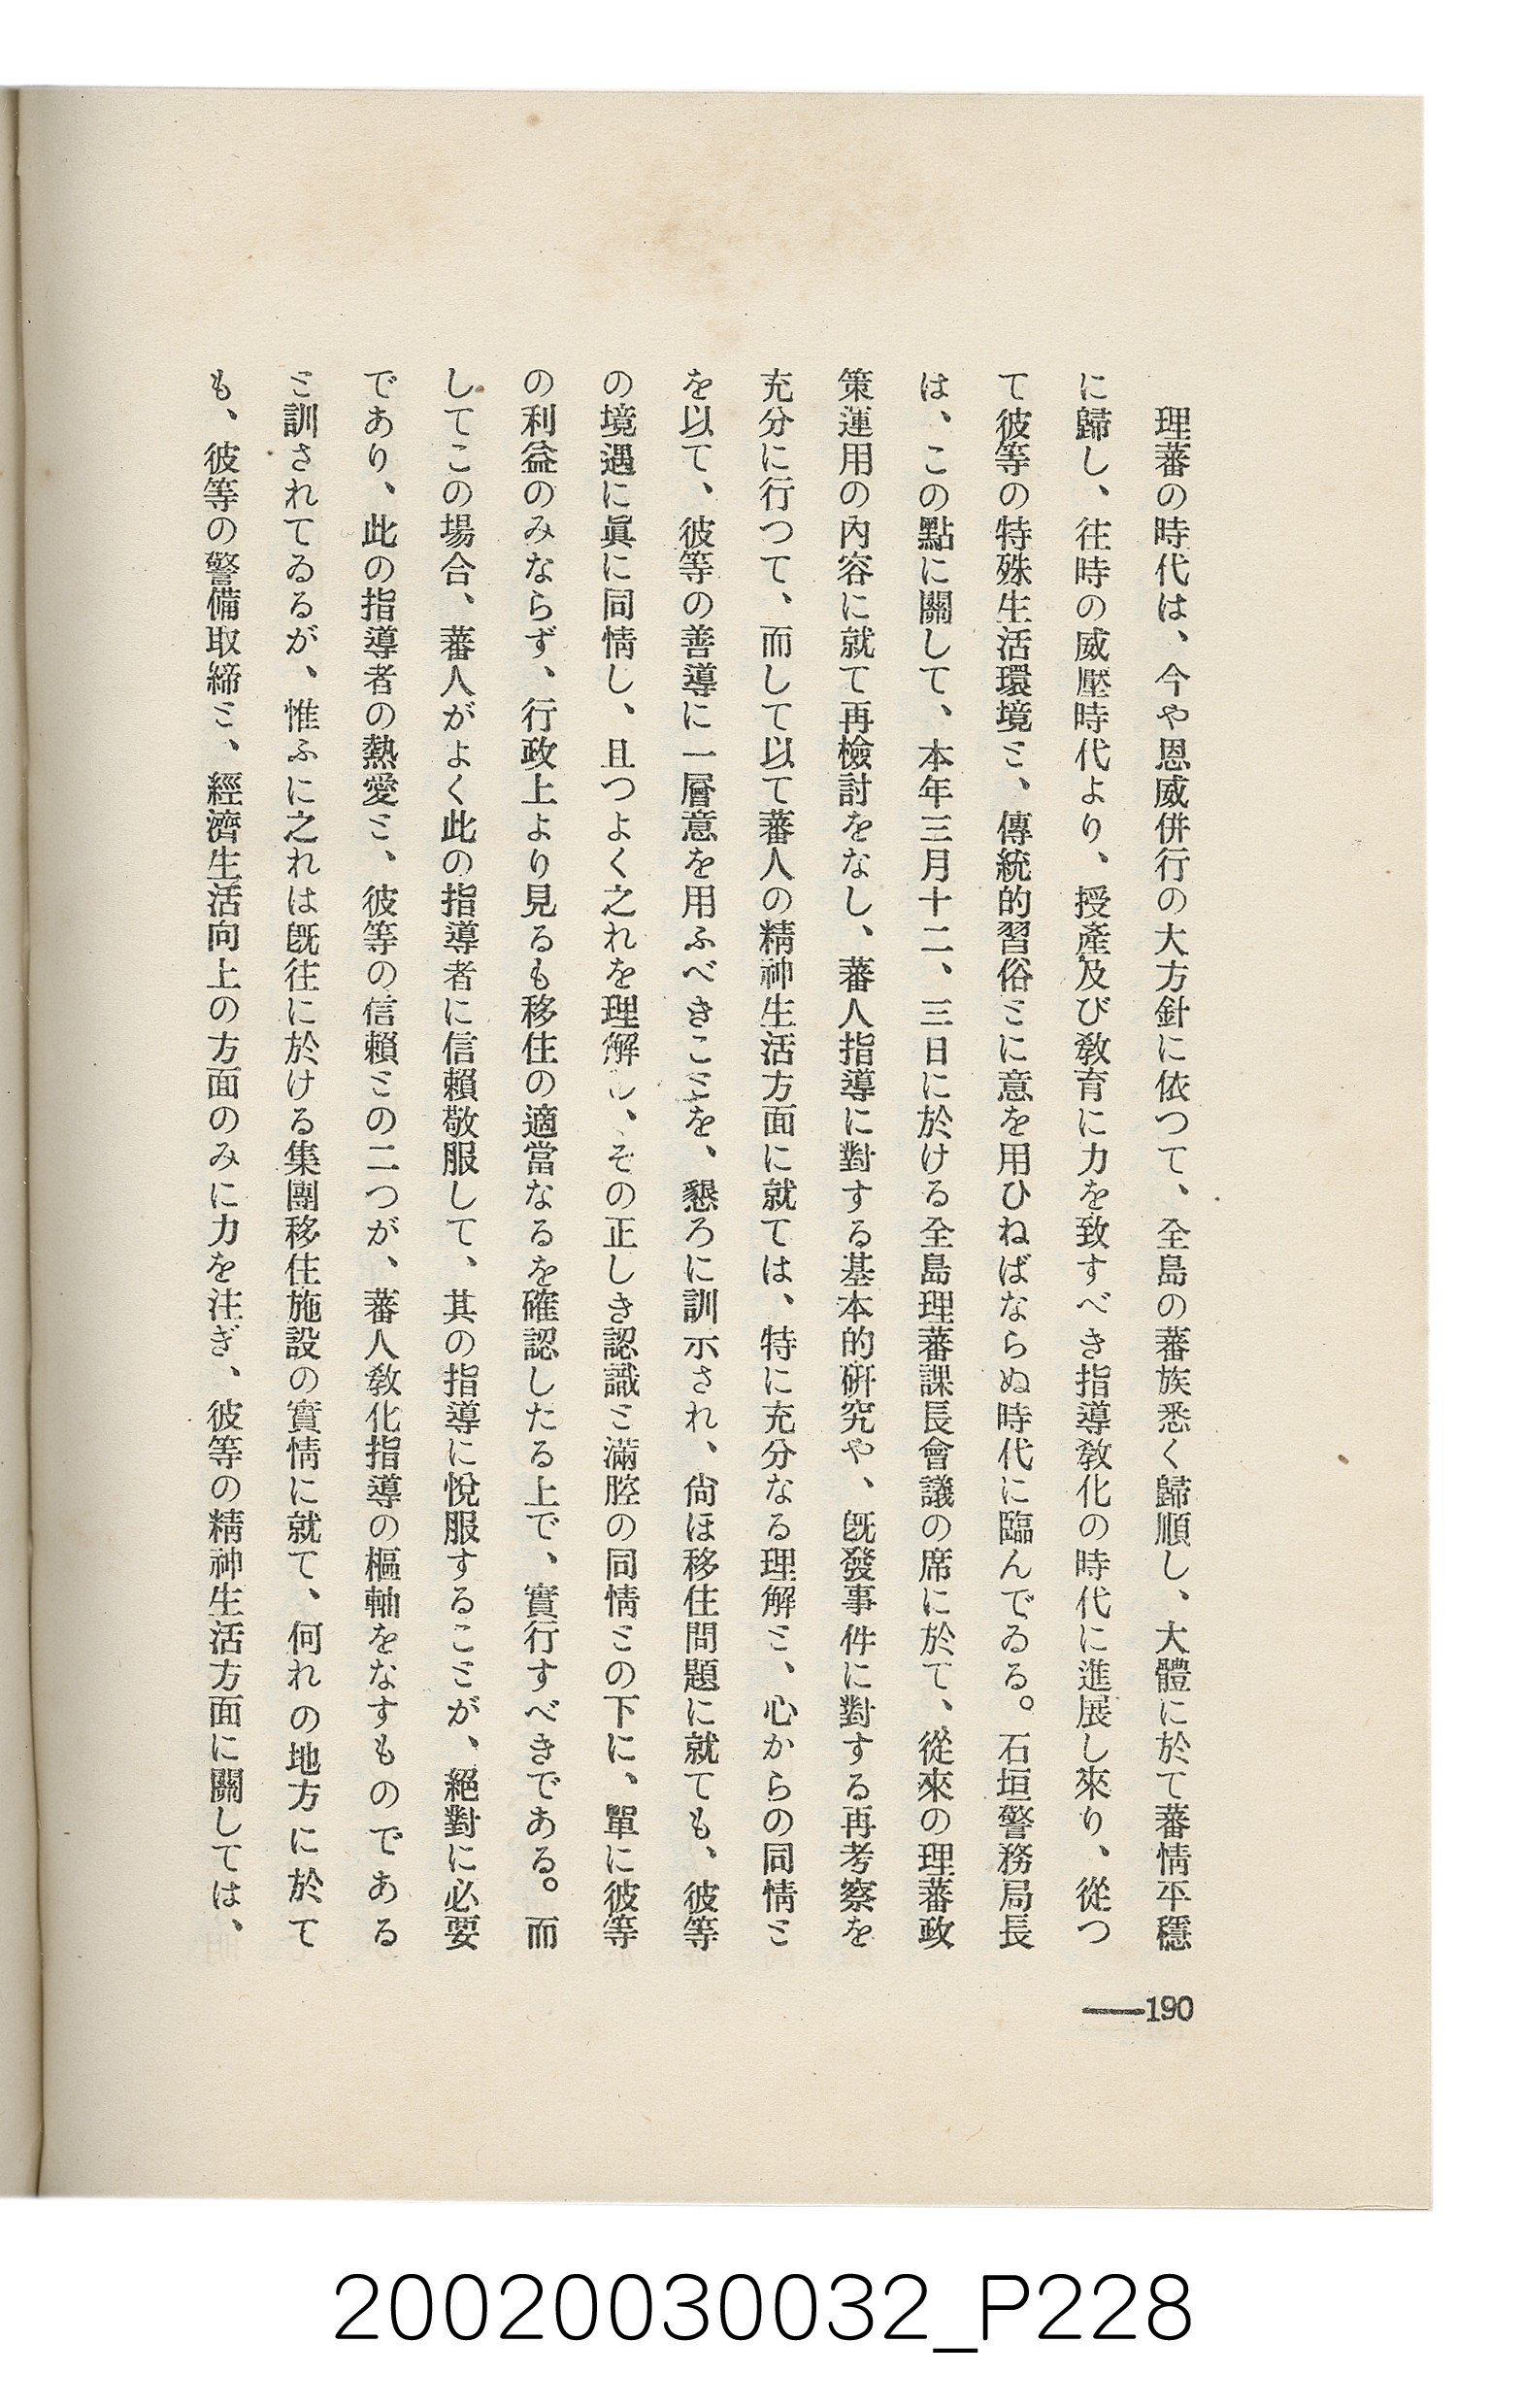 理蕃の時代は、今や恩威併行の大方針に依つて、全島の蕃族悉く歸順し、大體に於て蕃情平穩
に歸し、往時の威壓時代より、授產及び敎育に力を致すべき指導敎化の時代に進展し來り、從つ
て彼等の特殊生活環境ミ、傳統的習俗ミに意を用ひねばならぬ時代に臨んでゐる。石垣警務局長
は、この點に關して、本年三月十二、三日に於ける全島理蕃課長會議の席に於て、從來の理蕃政
策運用の內容に就て再檢討をなし、蕃人指導に對する基本的硏究や、旣發事件に對する再考察を
充分に行つて、而して以て蕃人の精神生活方面に就ては、特に充分なる理解ミ、心からの同情ミ
を以て、彼等の善導に一層意を用ふべきこミを、懇ろに訓示され、尙ほ移住問題に就ても、彼等
の境遇に眞に同情し、且つよく之れを理解し、その正しき認識ミ滿腔の同情ミの下に、單に彼等
の利益のみならず、行政上より見るも移住の適當なるを確認したる上で、實行すべきである。而
してこの場合、蕃人がよく此の指導者に信賴敬服して、其の指導に悅服するこミが、絕對に必要
であり、此の指導者の熱愛ミ、彼等の信賴ミの二つが、蕃人敎化指導の樞軸をなすものである
ミ訓されてゐるが、惟ふに之れは旣往に於ける集團移住施設の實情に就て、何れの地方に於て
も、彼等の警備取締ミ、經濟生活向上の方面のみに力を注ぎ、彼等の精神生活方面に關しては、
——190
20020030032_P228